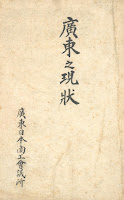 廣東之現狀
廣東日本商工會議所